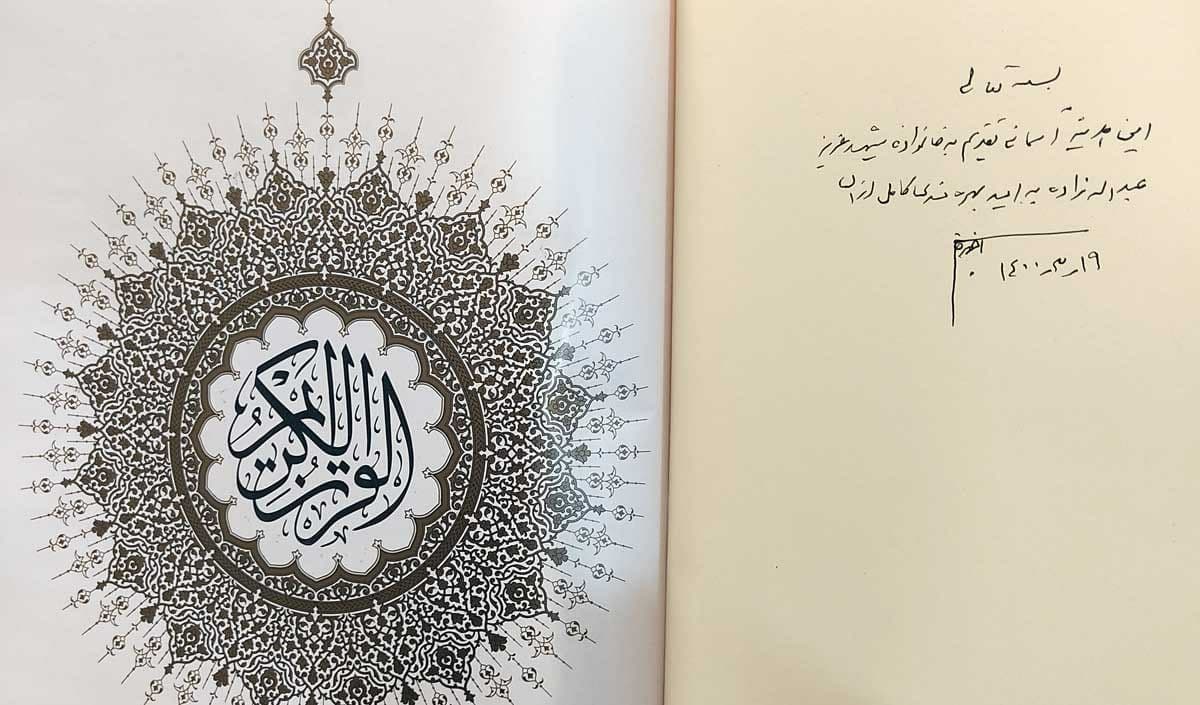 القرآن الكريم
بسمه تعالی
این هدیه آسمانی تقدیم به خانواده شهید عزیز
عبداله زاده به امید بهره مندی کامل از آن
۱۹ مهر ۱۴۰۰